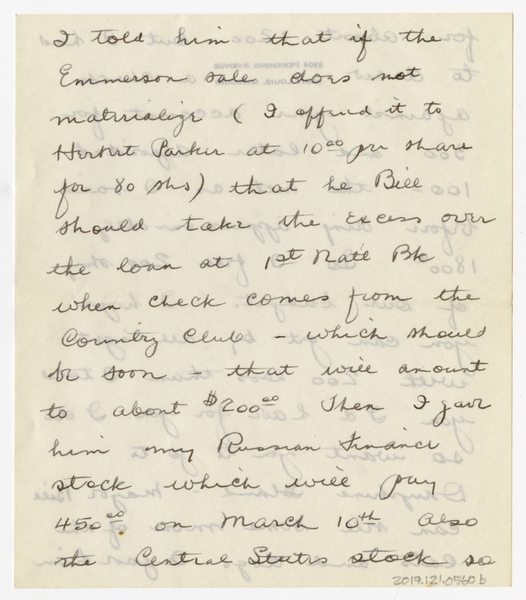 I told him that if the
Emmerson sale does not
materialize (I offered it to
Herbert Parker at 10.00 per share
for 80 shs) that he Bill
should take the excess over
the loan at 1st Nat'l Bk
when check comes from the
Country Club - which should
be soon - that will amount
to about $200.00 Then I gave
him my Russian Finance
stock which will pay
450.00 on March 10th Also
the Central States stock so
2019.121.0560b